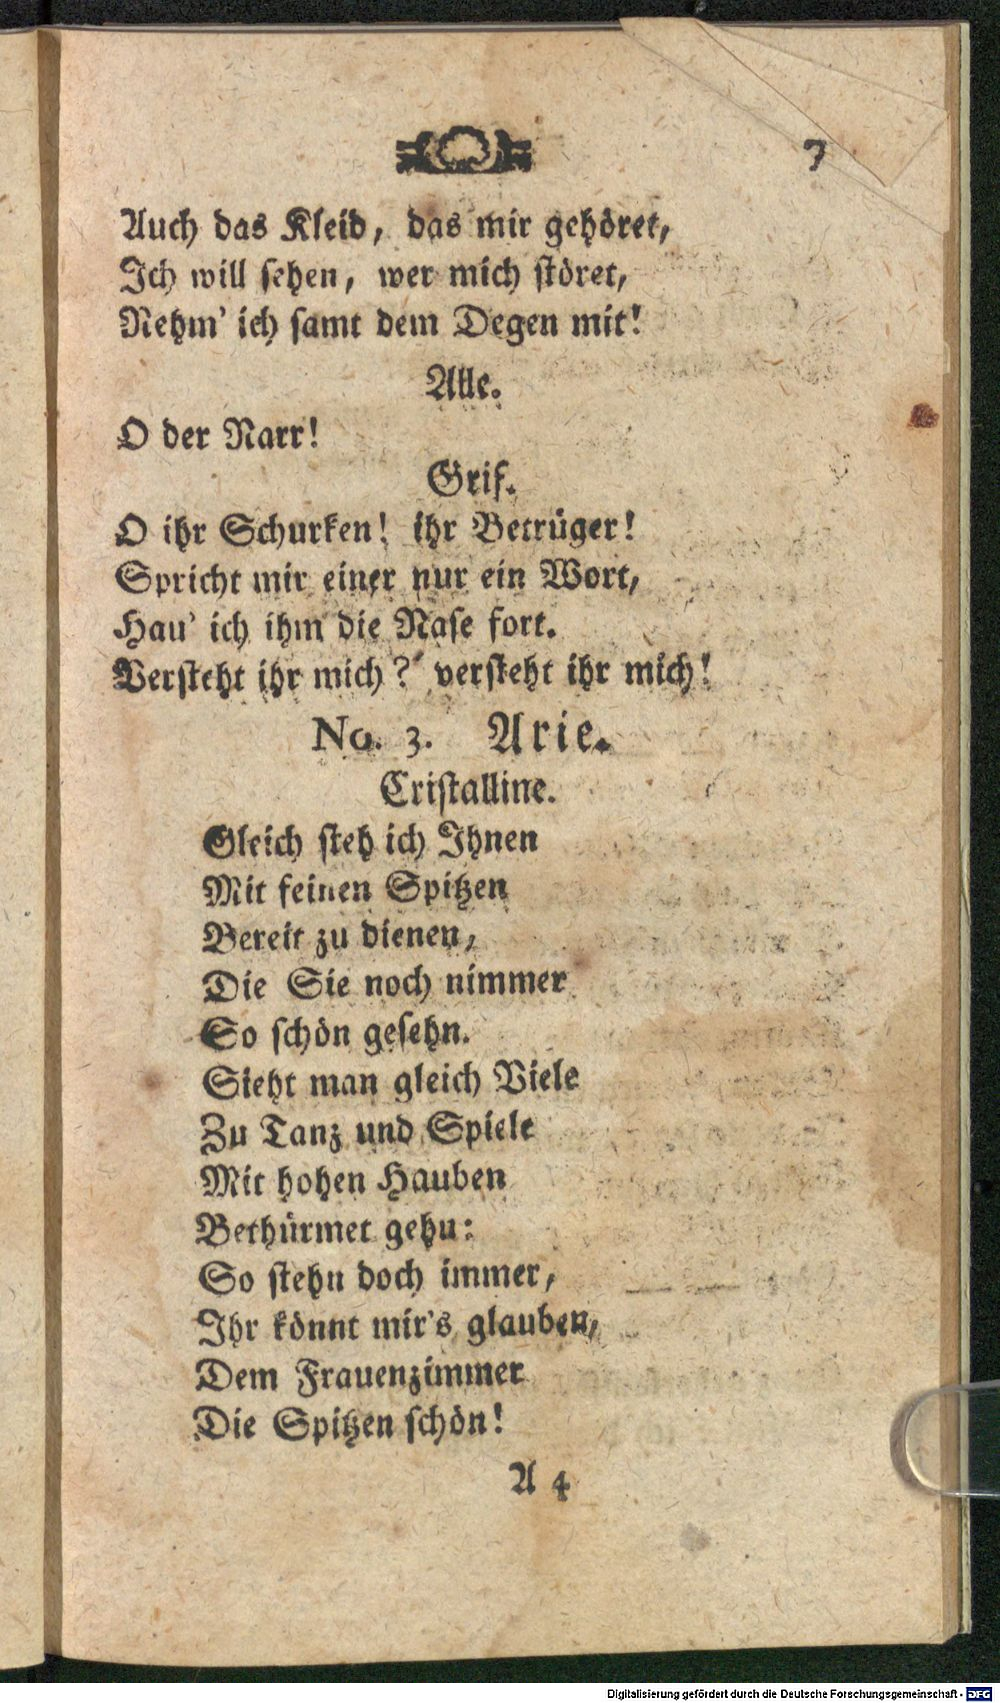 7
Auch das Kleid, das mir gehöret,
Ich will sehen, wer mich störet,
Nehm' ich samt dem Degen mit!
Alle.
O der Narr!
Grif.
O ihr Schurken! ihr Betrüger!
Spricht mir einer nur ein Wort,
Hau' ich ihm die Nase fort.
Versteht ihr mich? versteht ihr mich!
No. 3. Arie.
Cristalline.
Gleich steh ich Ihnen
Mit feinen Spitzen
Bereit zu dienen,
Die Sie noch nimmer
So schön gesehn.
Sieht man gleich Viele
Zu Tanz und Spiele
Mit hohen Hauben
Bethürmet gehn:
So stehn doch immer,
Ihr könnt mir's glauben,
Dem Frauenzimmer
Die Spitzen schön!
A 4
Digitalisierung gefördert durch die Deutsche Forschungsgemeinschaft - DFG